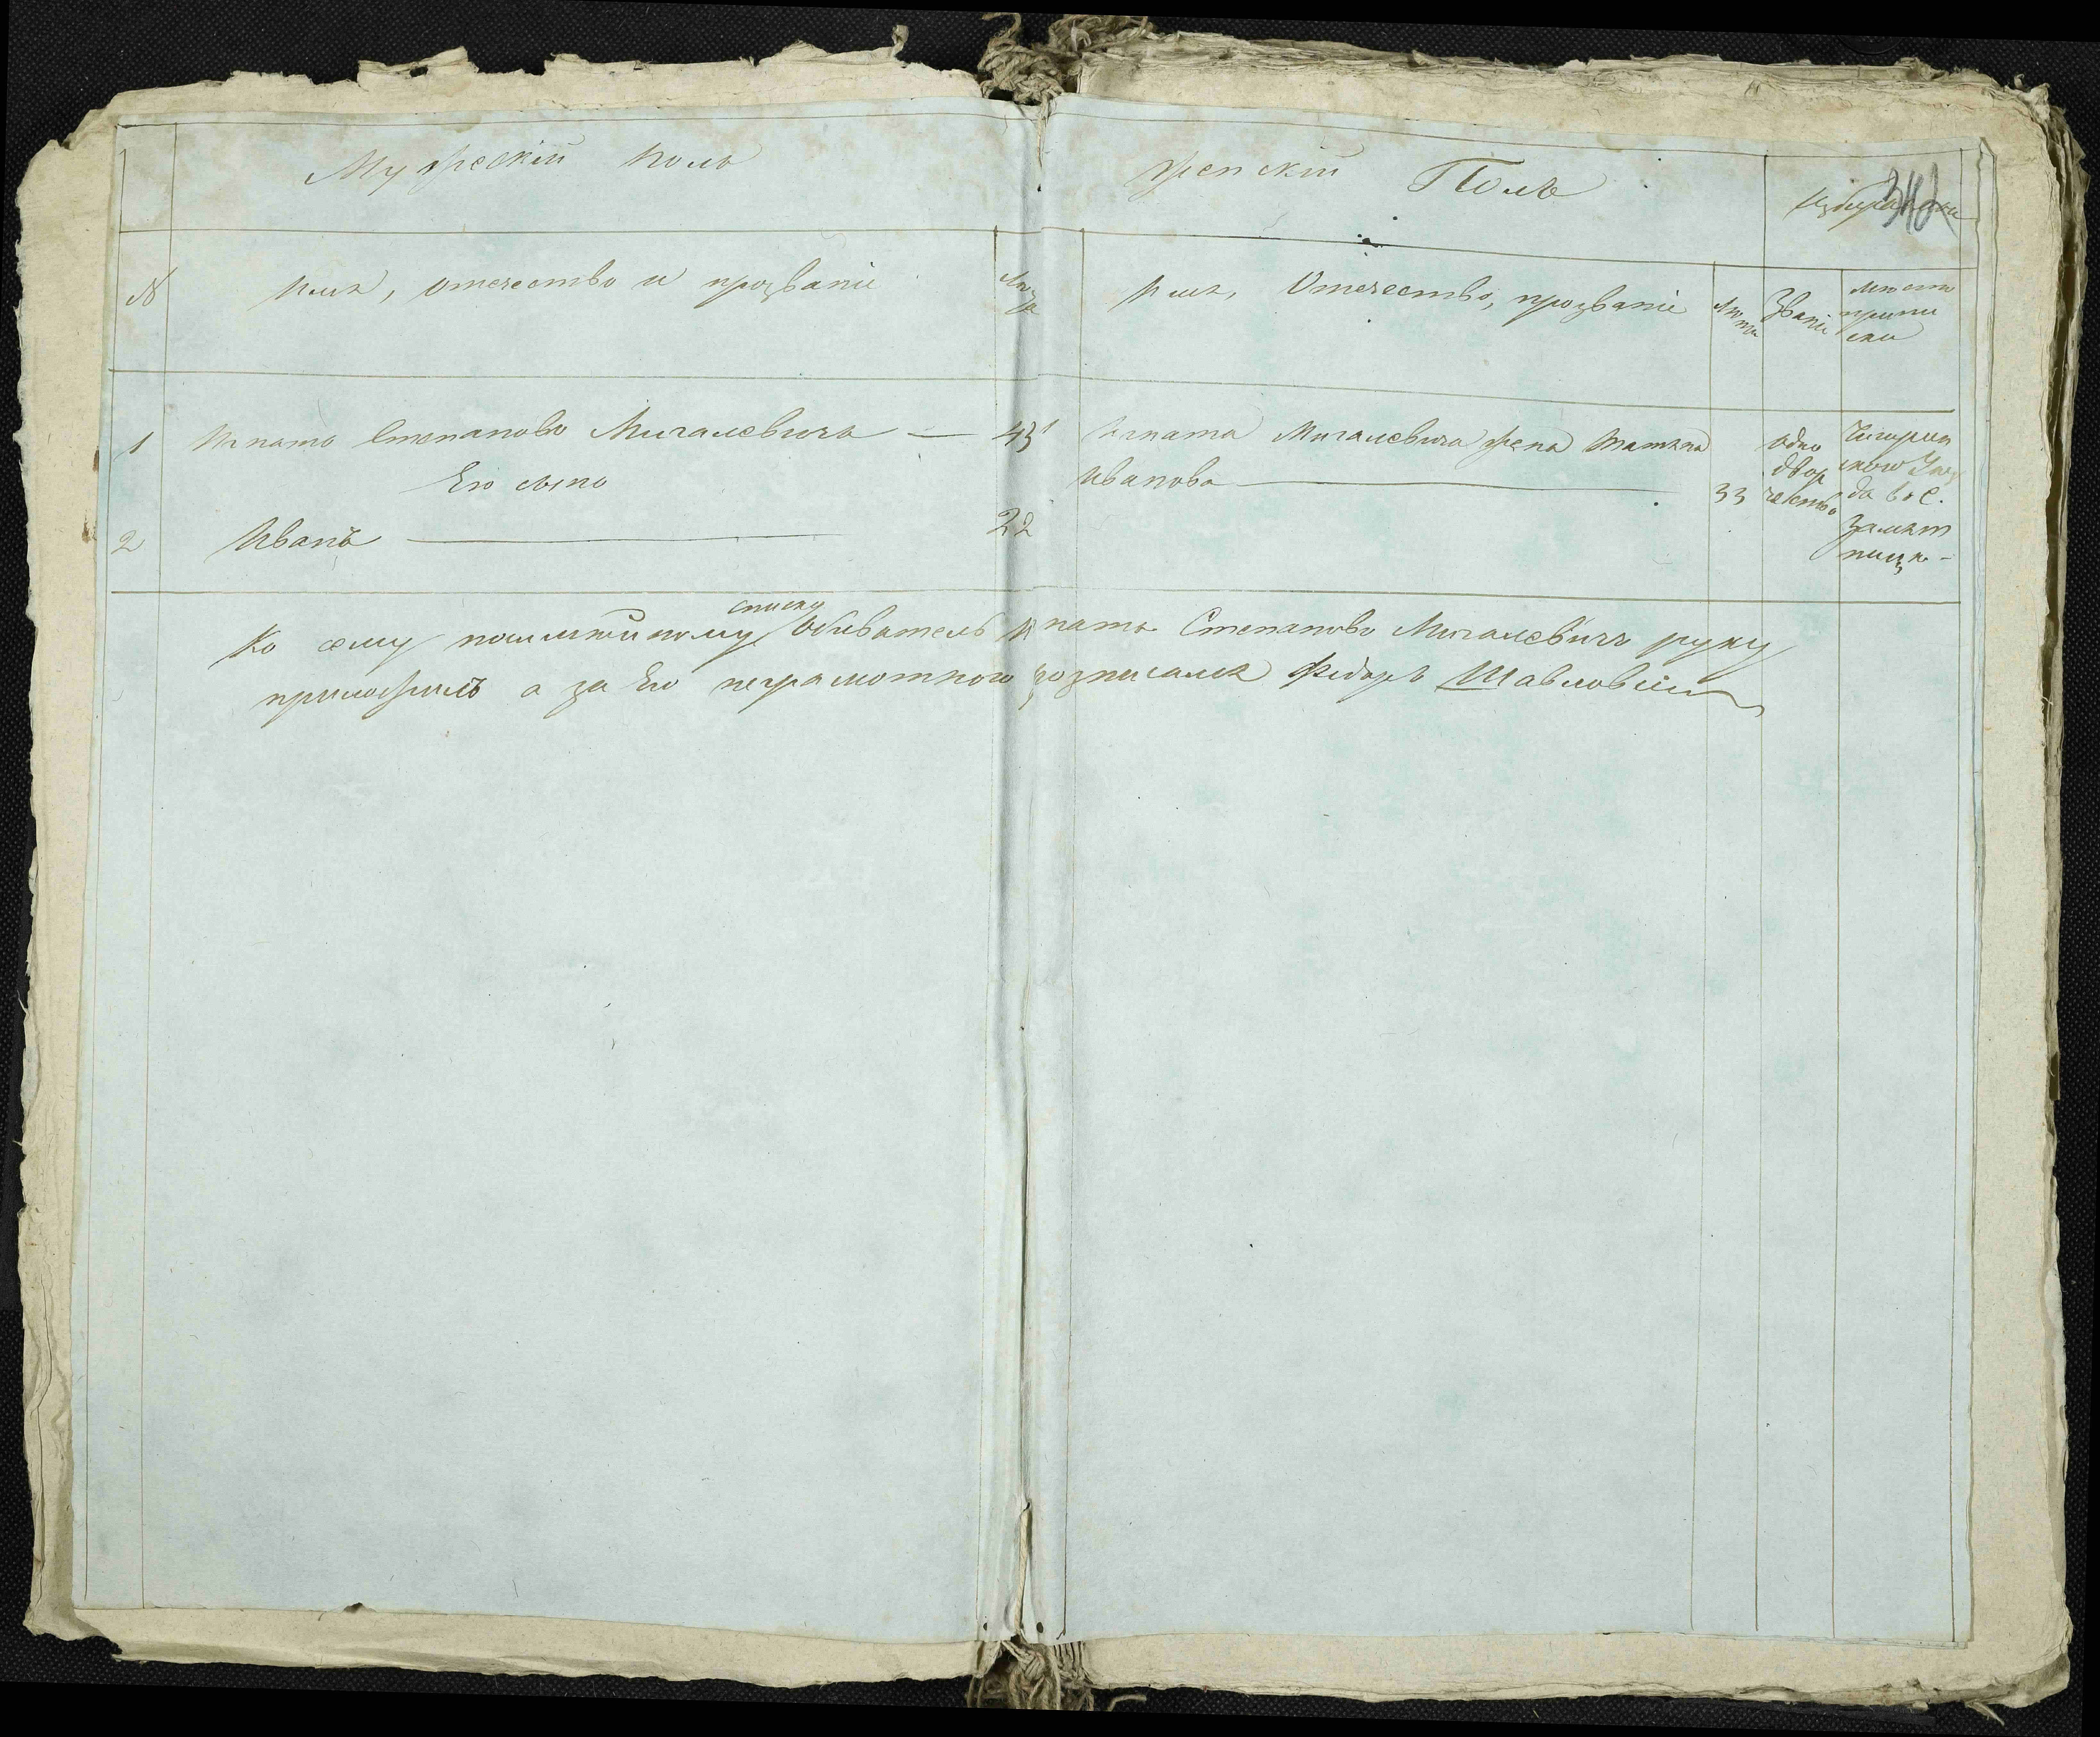 Мужескій полъ
Женскій Полъ
N
Имя, отечество и прозваніе
Лета
Имя, Отечество, прозваніе
Лета
Званіе
Место
припи
ски
1 Игнатъ Степановъ Мигалевичъ — 43
Его сынъ
2 Иванъ — 22
Игната Мигалевича жена Татяна
Иванова — 33
одно
двор
чество
Чигирин
ского Уез
да в с.
Замят
ницу -
Ко сему поименному списку Обиватель Игнатъ Степановъ Мигалевичъ руку
приложилъ а за Его неграмотного розписался Федоръ Шавловскій